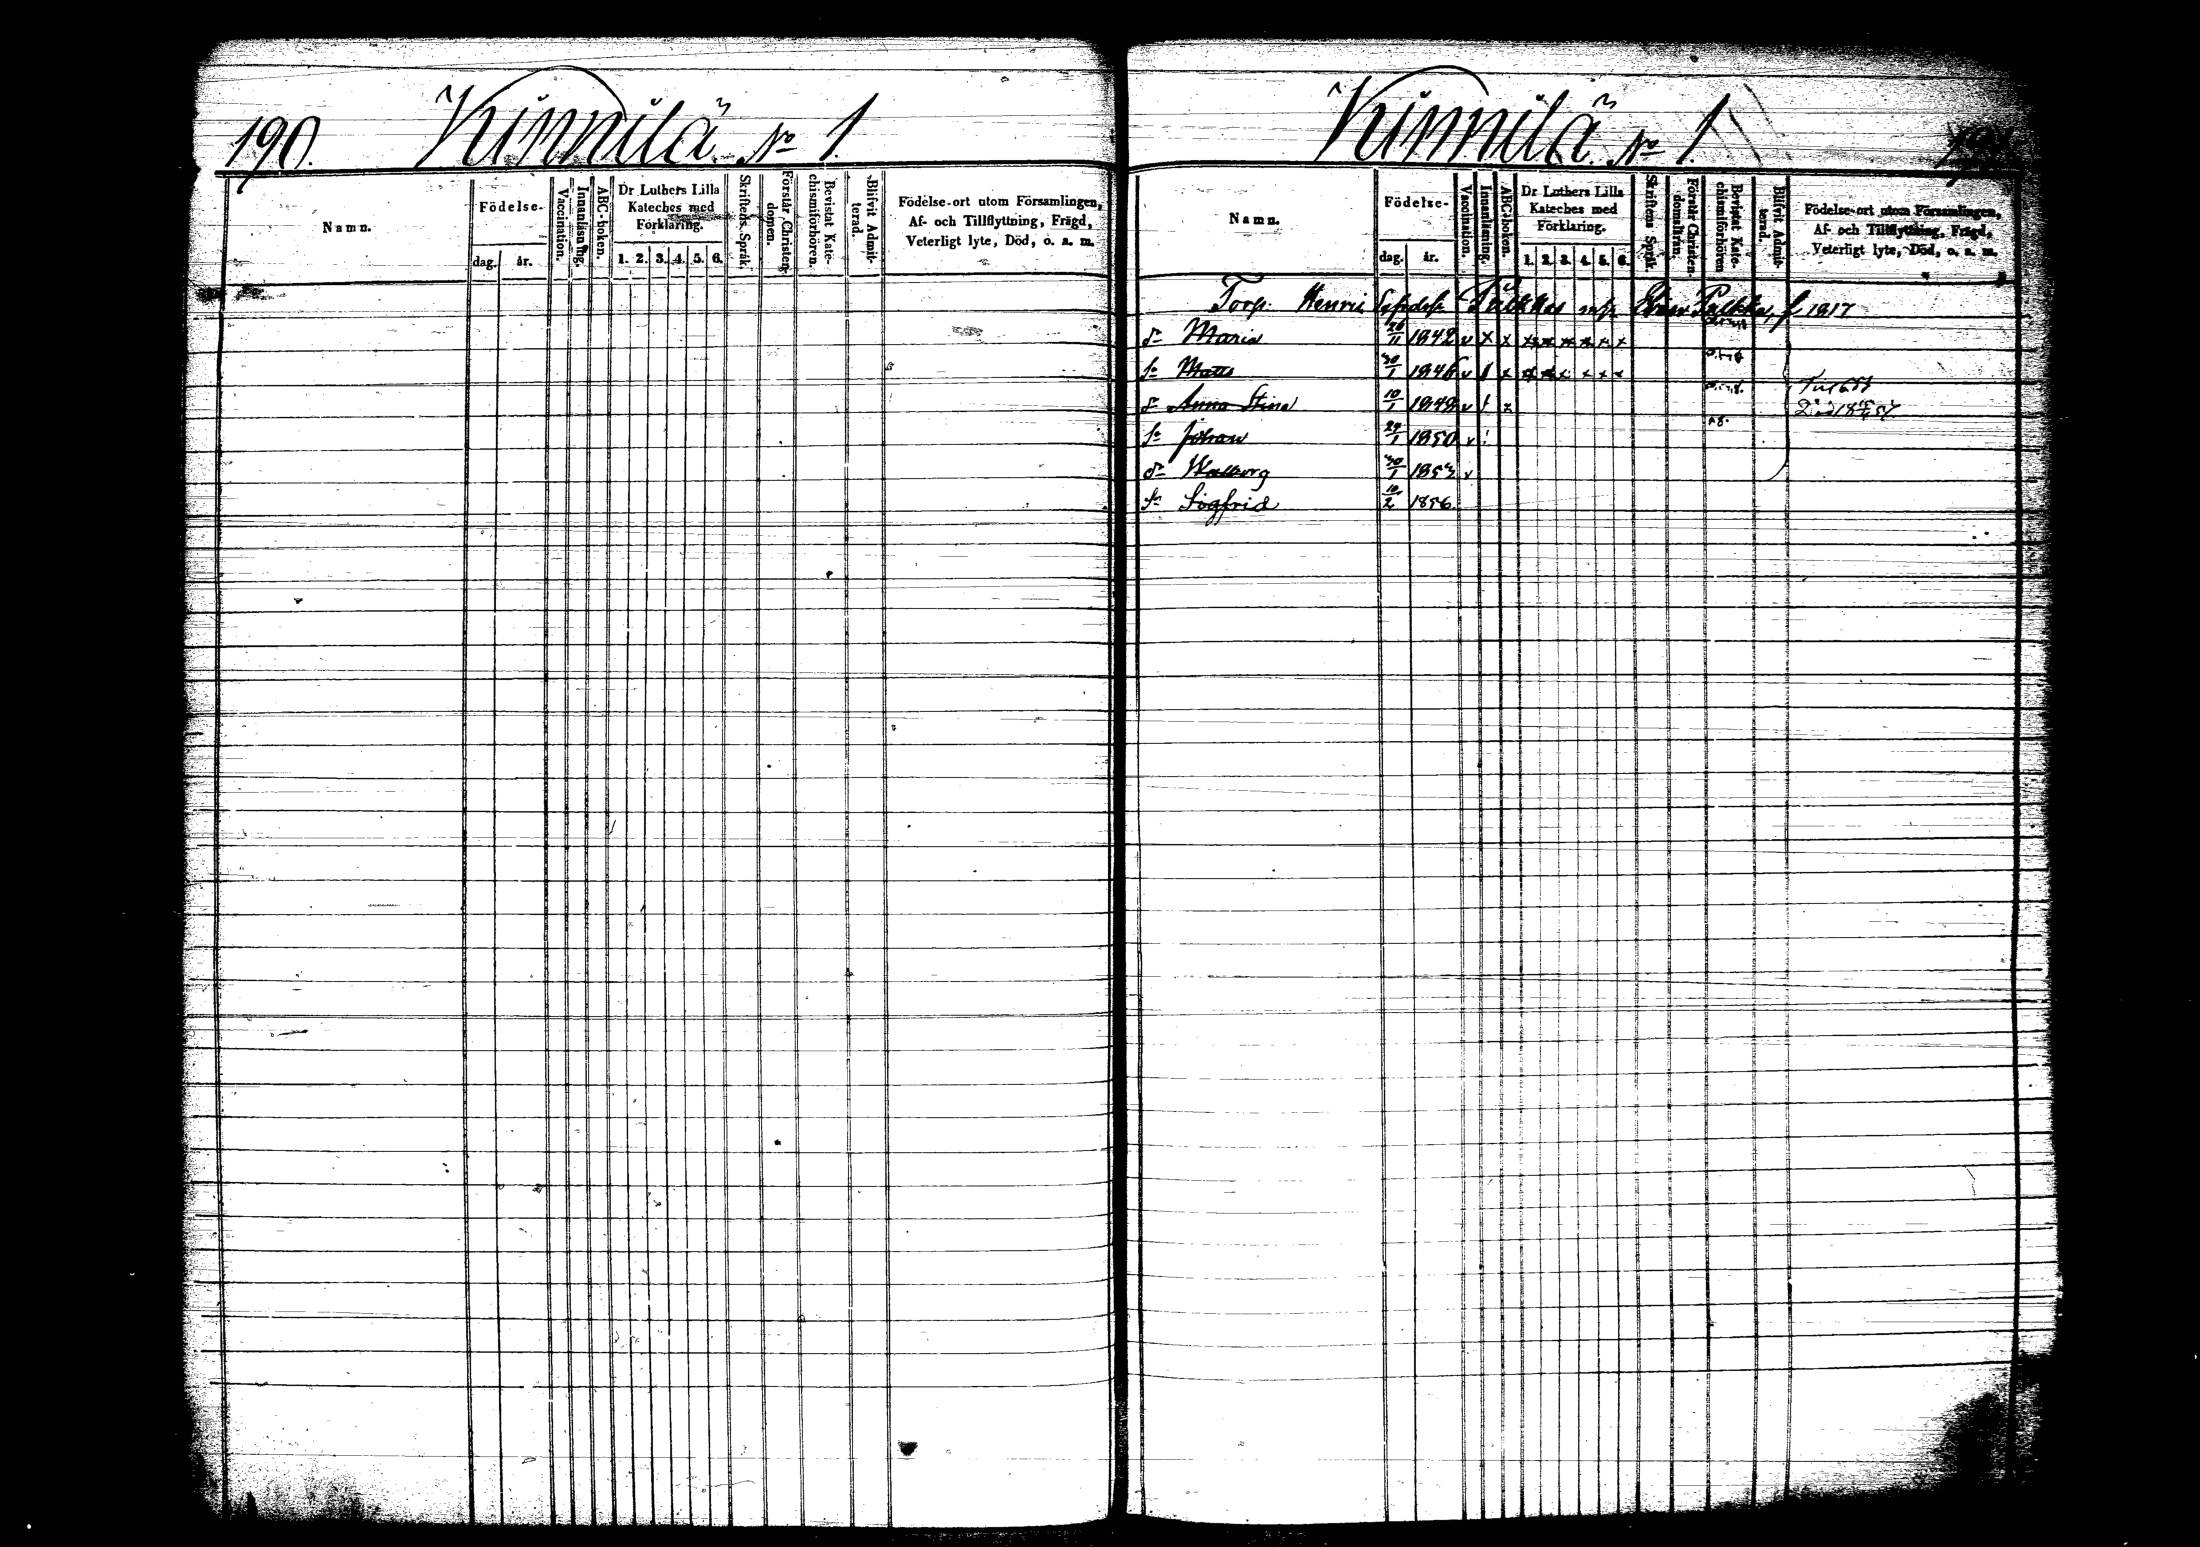 190. Kinnilä No 1.
Namn.
Födelse-
dag.
år.
Vaccination.
Innanläsning.
ABC-boken.
Dr Luthers Lilla
Kateches med
Förklaring.
1. 2. 3. 4. 5. 6.
Skriftens Språk.
Förstår Christen-
domen.
Bevistat Kate-
chismiförhören.
Blifvit Admit-
terad.
Födelse-ort utom Församlingen,
Af- och Tillflyttning, Frägd,
Veterligt lyte, Död, o. a. m.
Kinnilä No 1.
Namn.
Födelse-
dag.
år.
Vaccination.
Innanläsning.
ABC-boken.
Dr Luthers Lilla
Kateches med
Förklaring.
1. 2. 3. 4. 5. 6.
Skriftens Språk.
Förstår Christen-
domsläran.
Bevistat Kate-
chismiförhören
Blifvit Admit-
terad.
Födelse-ort utom Församlingen,
Af- och Tillflyttning, Frägd,
Veterligt lyte, Död, o. a. m.
Torp. Henric f 1817
dr Maria 26/11 1842 v x x x x x x x x
Sn Matts 30/1 1846 v x x x x x x x
dr Anna Stina 10/1 1849 v x
Sn Johan 24/1 1850 v
dr Walborg 30/1 1853 v
Sn Sigfrid 10/2 1856.